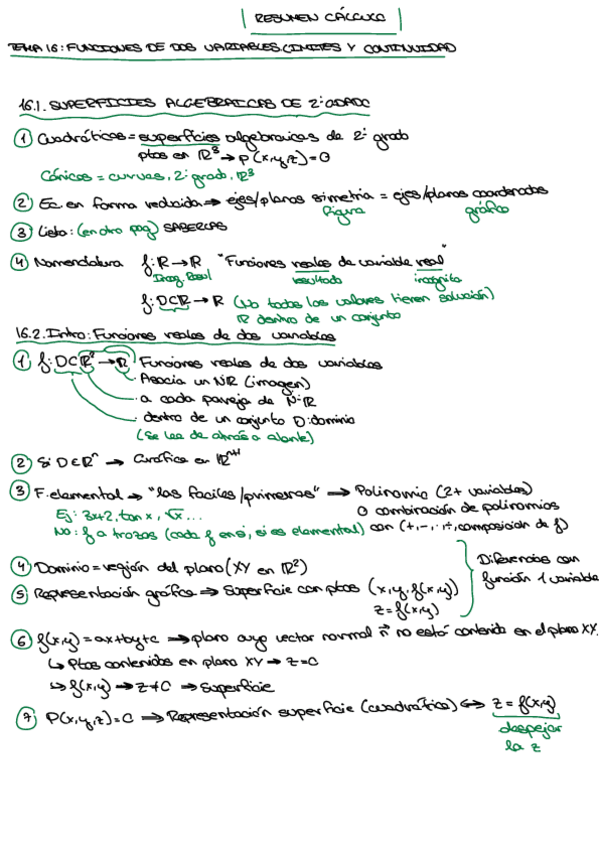 RESUMEN CÁLCULO
TEMA 16: FUNCIONES DE DOS VARIABLES LIMITES Y CONTINUIDAD
16.1. SUPERFICIES ALGEBRAICAS DE 2º GRADO
① Cuadráticas = superficies algebraicas de 2º grado
ptos en ℝ³ → P(x,y,z)=0
Cónicas = curvas, 2º grado, ℝ³
② Ec. en forma reducida → ejes/planos simetria = ejes/planos coordenados
figura gráfico
③ Lista: (en otra pag) SABERLAS
④ Nomenclatura f: ℝ → ℝ "Funciones reales de variable real"
resultado incognita
f: D⊂ℝ → ℝ (No todos los valores tienen solución)
ℝ dentro de un conjunto
16.2. Intro: Funciones reales de dos variables
① f: D⊂ℝ² → ℝ Funciones reales de dos variables
· Asocia un Nº ℝ (imagen)
· a cada pareja de Nº ℝ
· dentro de un conjunto D: dominio
(Se lee de atrás a alante)
② Si D∈ℝⁿ → Gráfica en ℝⁿ⁺¹
③ F. elemental → "las faciles/primeras" → Polinomio (2+ variables)
Ej: 3x+2, tan x, √x ... O combinación de polinomios
No: f a trozos (cada f en si, si es elemental) con (+,-,·,÷, composición de f)
④ Dominio = región del plano (XY en ℝ²)
Diferencias con
función 1 variable
⑤ Representación gráfica → Superficie con ptos (x,y,f(x,y))
z=f(x,y)
⑥ f(x,y)=ax+by+c → plano cuyo vector normal n⃗ no está contenido en el plano XY.
↳ Ptos contenidos en plano XY → z=C
↳ f(x,y) → z≠C → Superficie
⑦ P(x,y,z)=C → Representación superficie (cuadrática) ↔ z=f(x,y)
despejar
la z